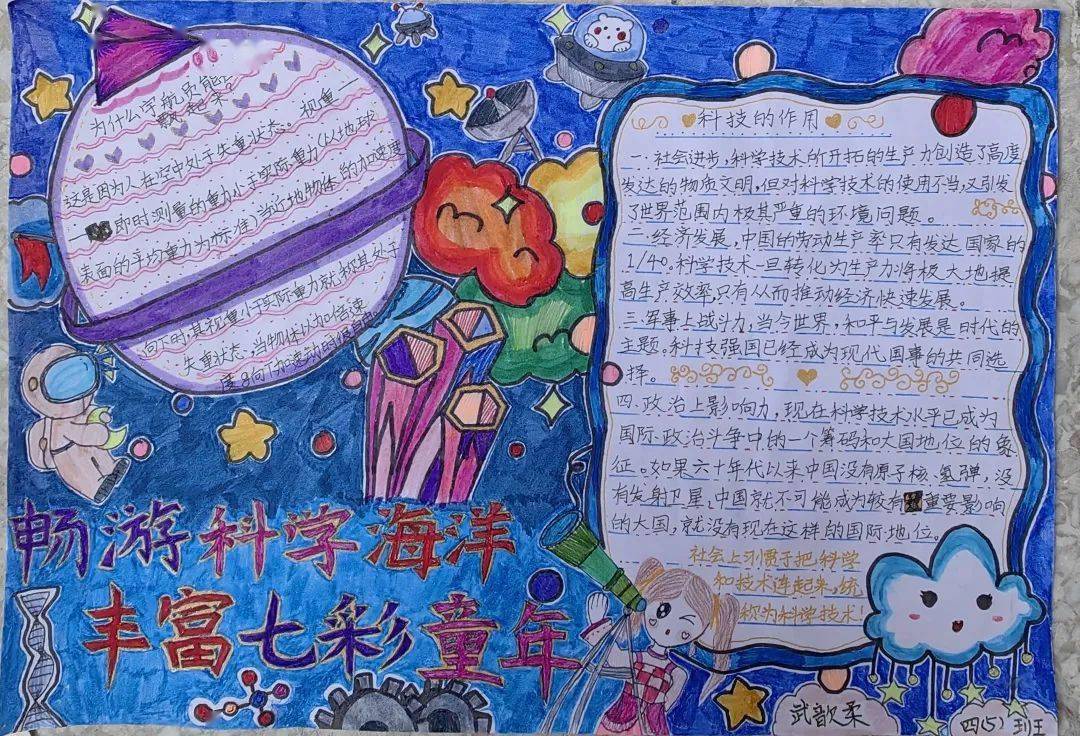 为什么宇航员能
飘起来?
这是因为人在空中处于失重状态。视重一
一即时测量的重力小于实际重力(以地球
表面的平均重力为标准,当近地物体的加速度
向下时,其视重小于实际重力就称其处于
失重状态,当物体以为0倍速
度g向下加速动时
科技的作用
一.社会进步,科学技术所开拓的生产力创造了高度
发达的物质文明,但对科学技术的使用不当,又引发
了世界范围内极其严重的环境问题。
二.经济发展,中国的劳动生产率只有发达国家的
1/40。科学技术一旦转化为生产力将极大地提
高生产效率,只有从而推动经济快速发展。
三.军事上战斗力,当今世界,和平与发展是时代的
主题。科技强国已经成为现代国事的共同选
择。
四.政治上影响力,现在科学技术水平已成为
国际政治斗争中的一个筹码和大国地位的象
征。如果六十年代以来中国没有原子核、氢弹,没
有发射卫星,中国就不可能成为较有重要影响
的大国,就没有现在这样的国际地位。
社会上习惯于把科学
和技术连起来,统
称为科学技术!
畅游科学海洋
丰富七彩童年
武歆柔
四(5)班